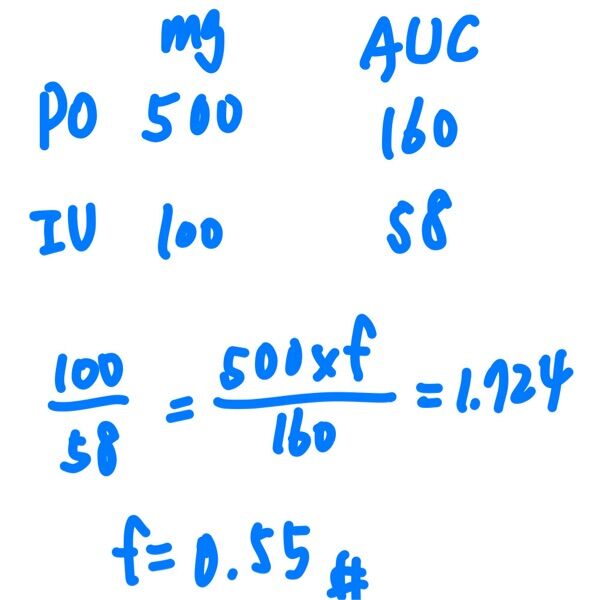 mg AUC
PO 500 160
IV 100 58
100/58 = 500xf/160 = 1.724
f = 0.55 #